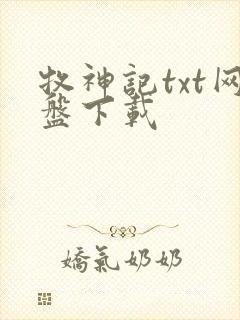 牧神記txt网
盤下載
嬌氣奶奶